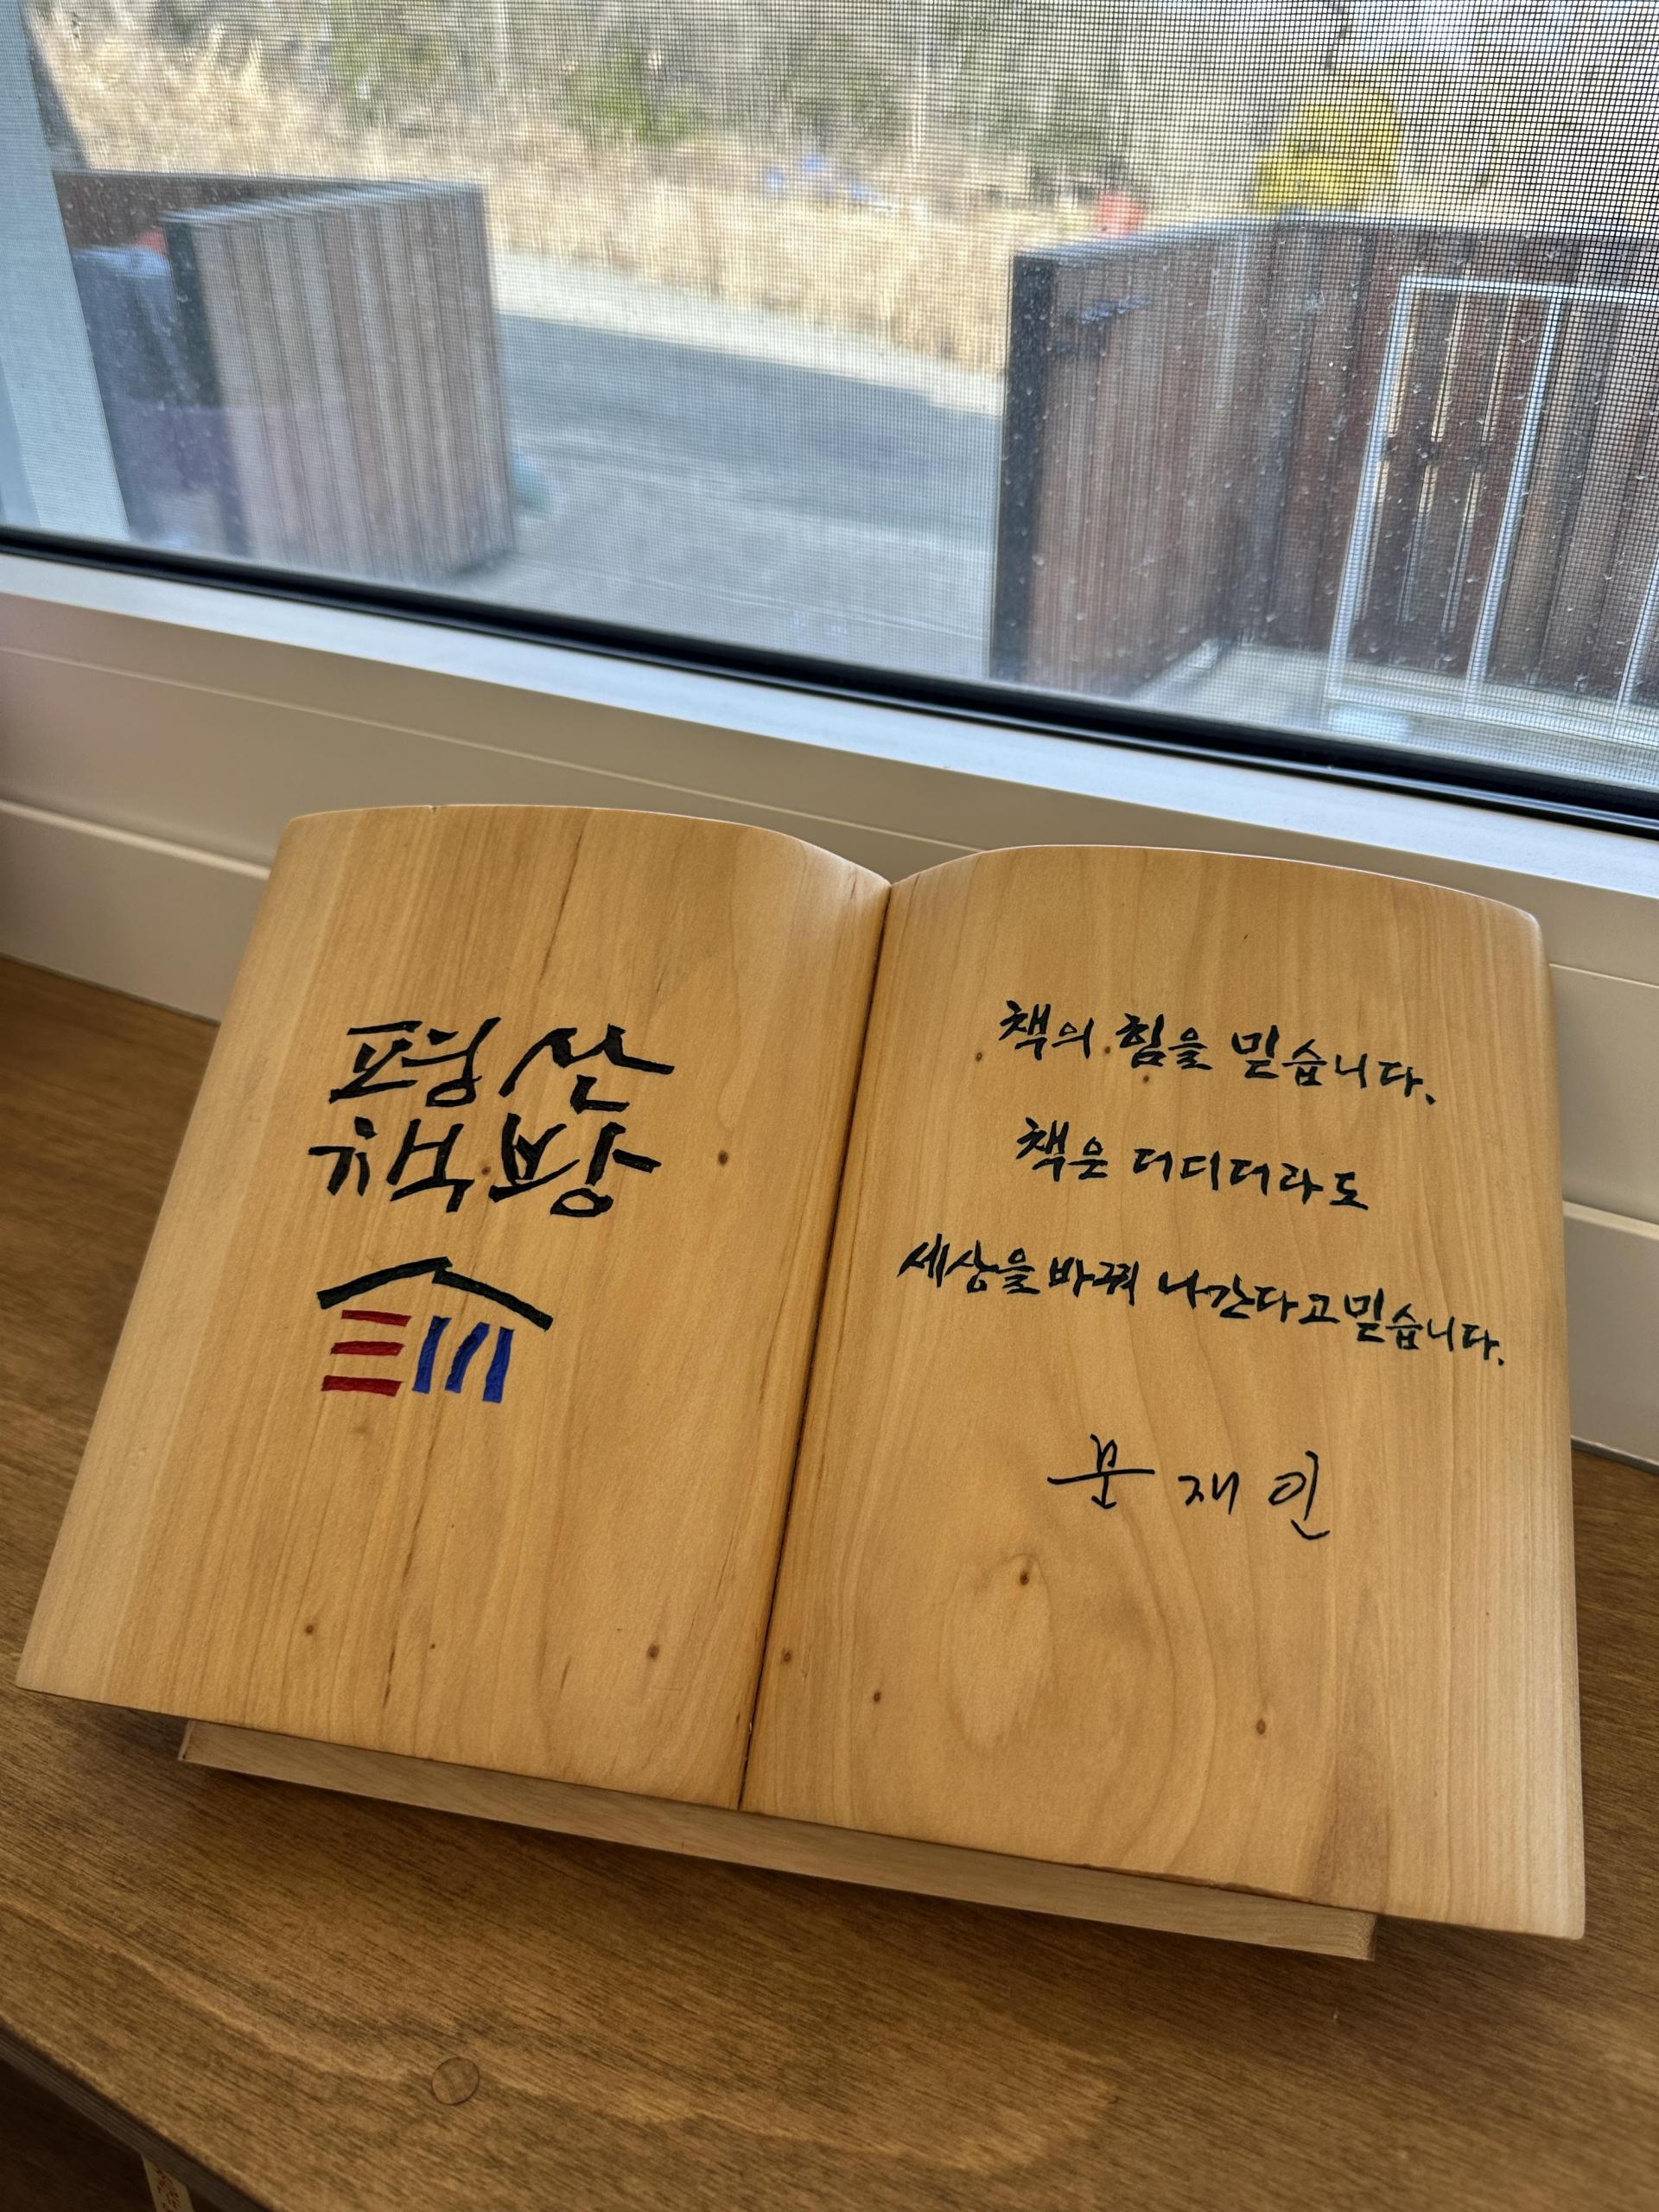 평산
책방
책의 힘을 믿습니다.
책은 더디더라도
세상을 바꿔 나간다고 믿습니다.
문재인